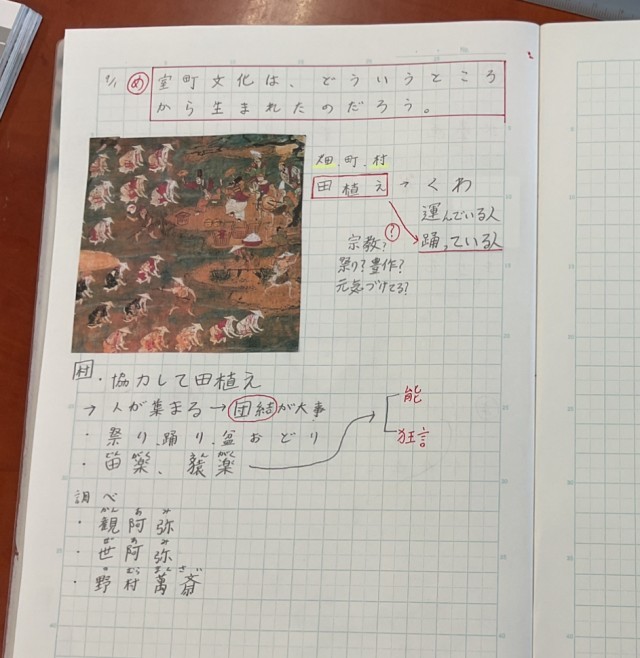 9/1 め 室町文化は、どういうところ
から生まれたのだろう。
畑、町、村
田植え → くわ
運んでいる人
踊っている人
?
宗教?
祭り?豊作?
元気づけてる?
村・協力して田植え
→ 人が集まる → 団結が大事
・祭り、踊り、盆おどり
でん がく さる がく
・田楽、猿楽
能
狂言
調べ
かん あ み
・観阿弥
ぜ あ み
・世阿弥
の むら まん さい
・野村萬斎